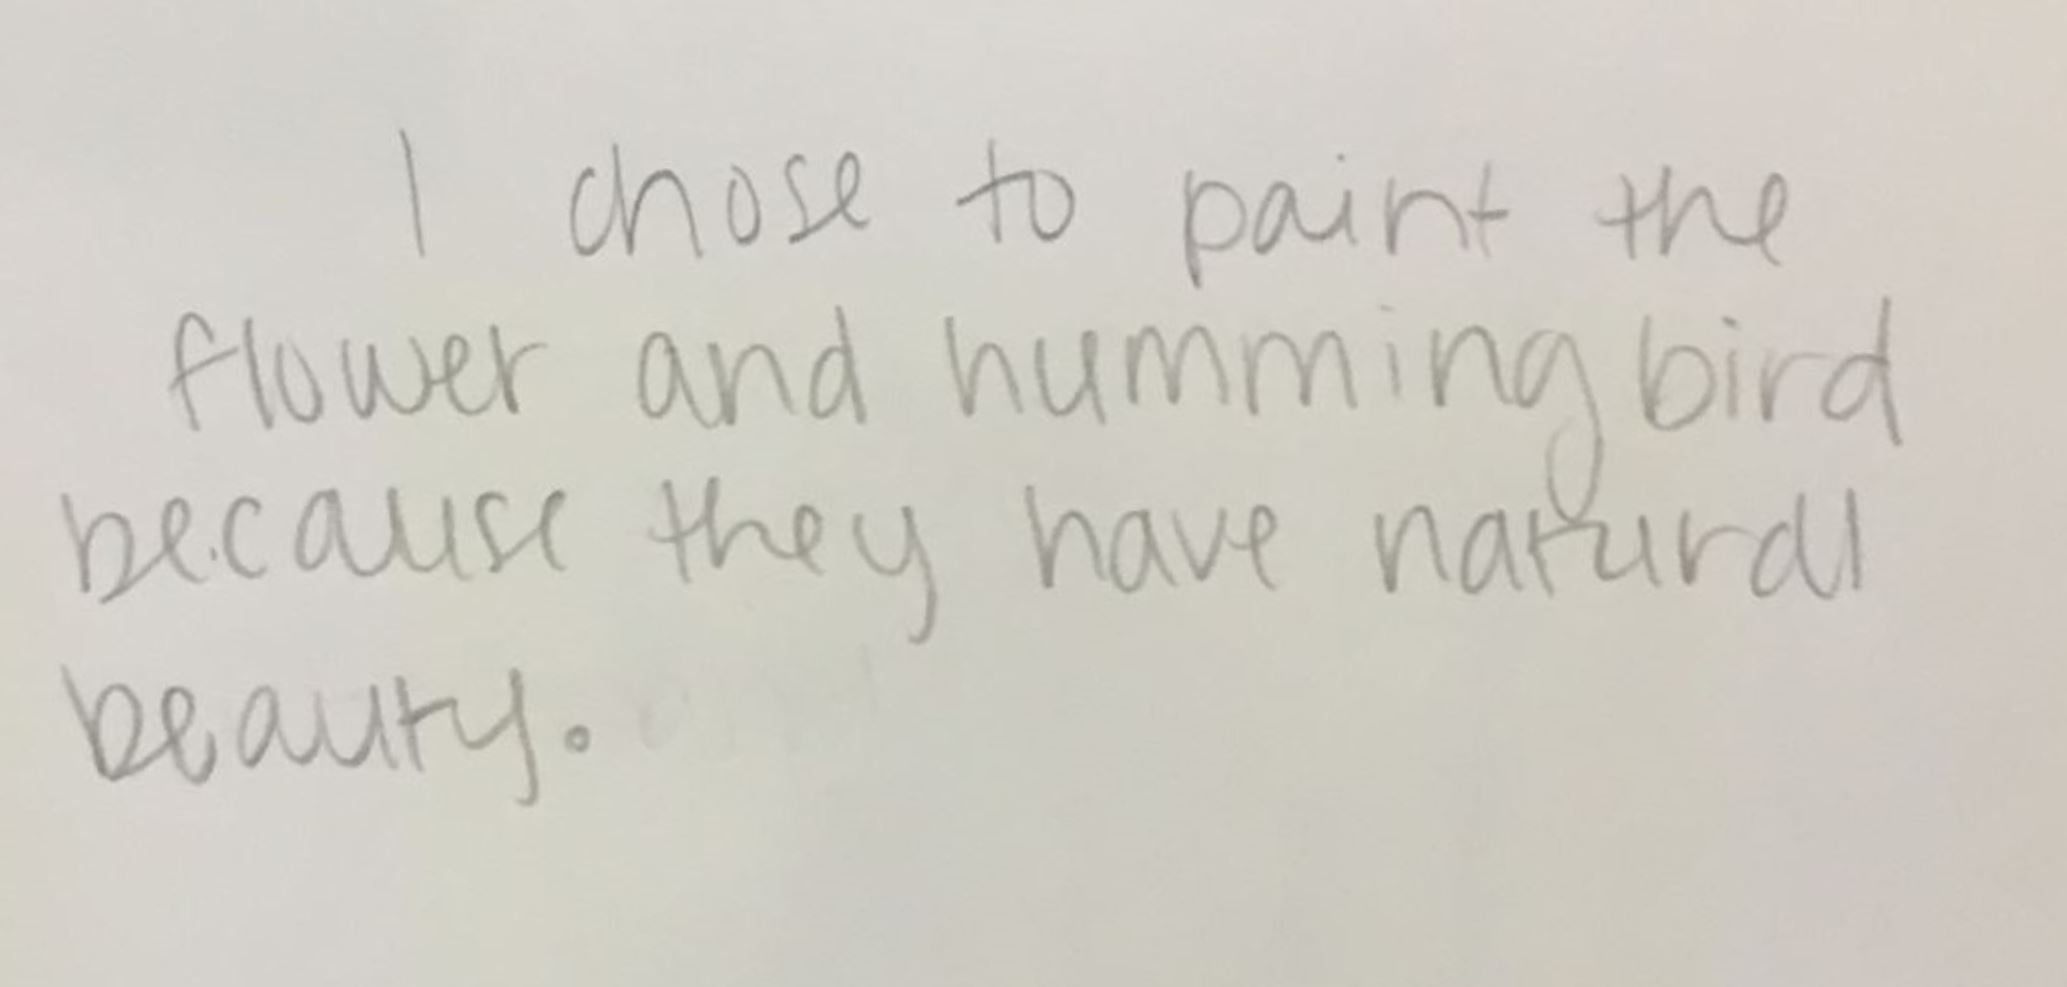 I chose to paint the
flower and hummingbird
because they have natural
beauty.